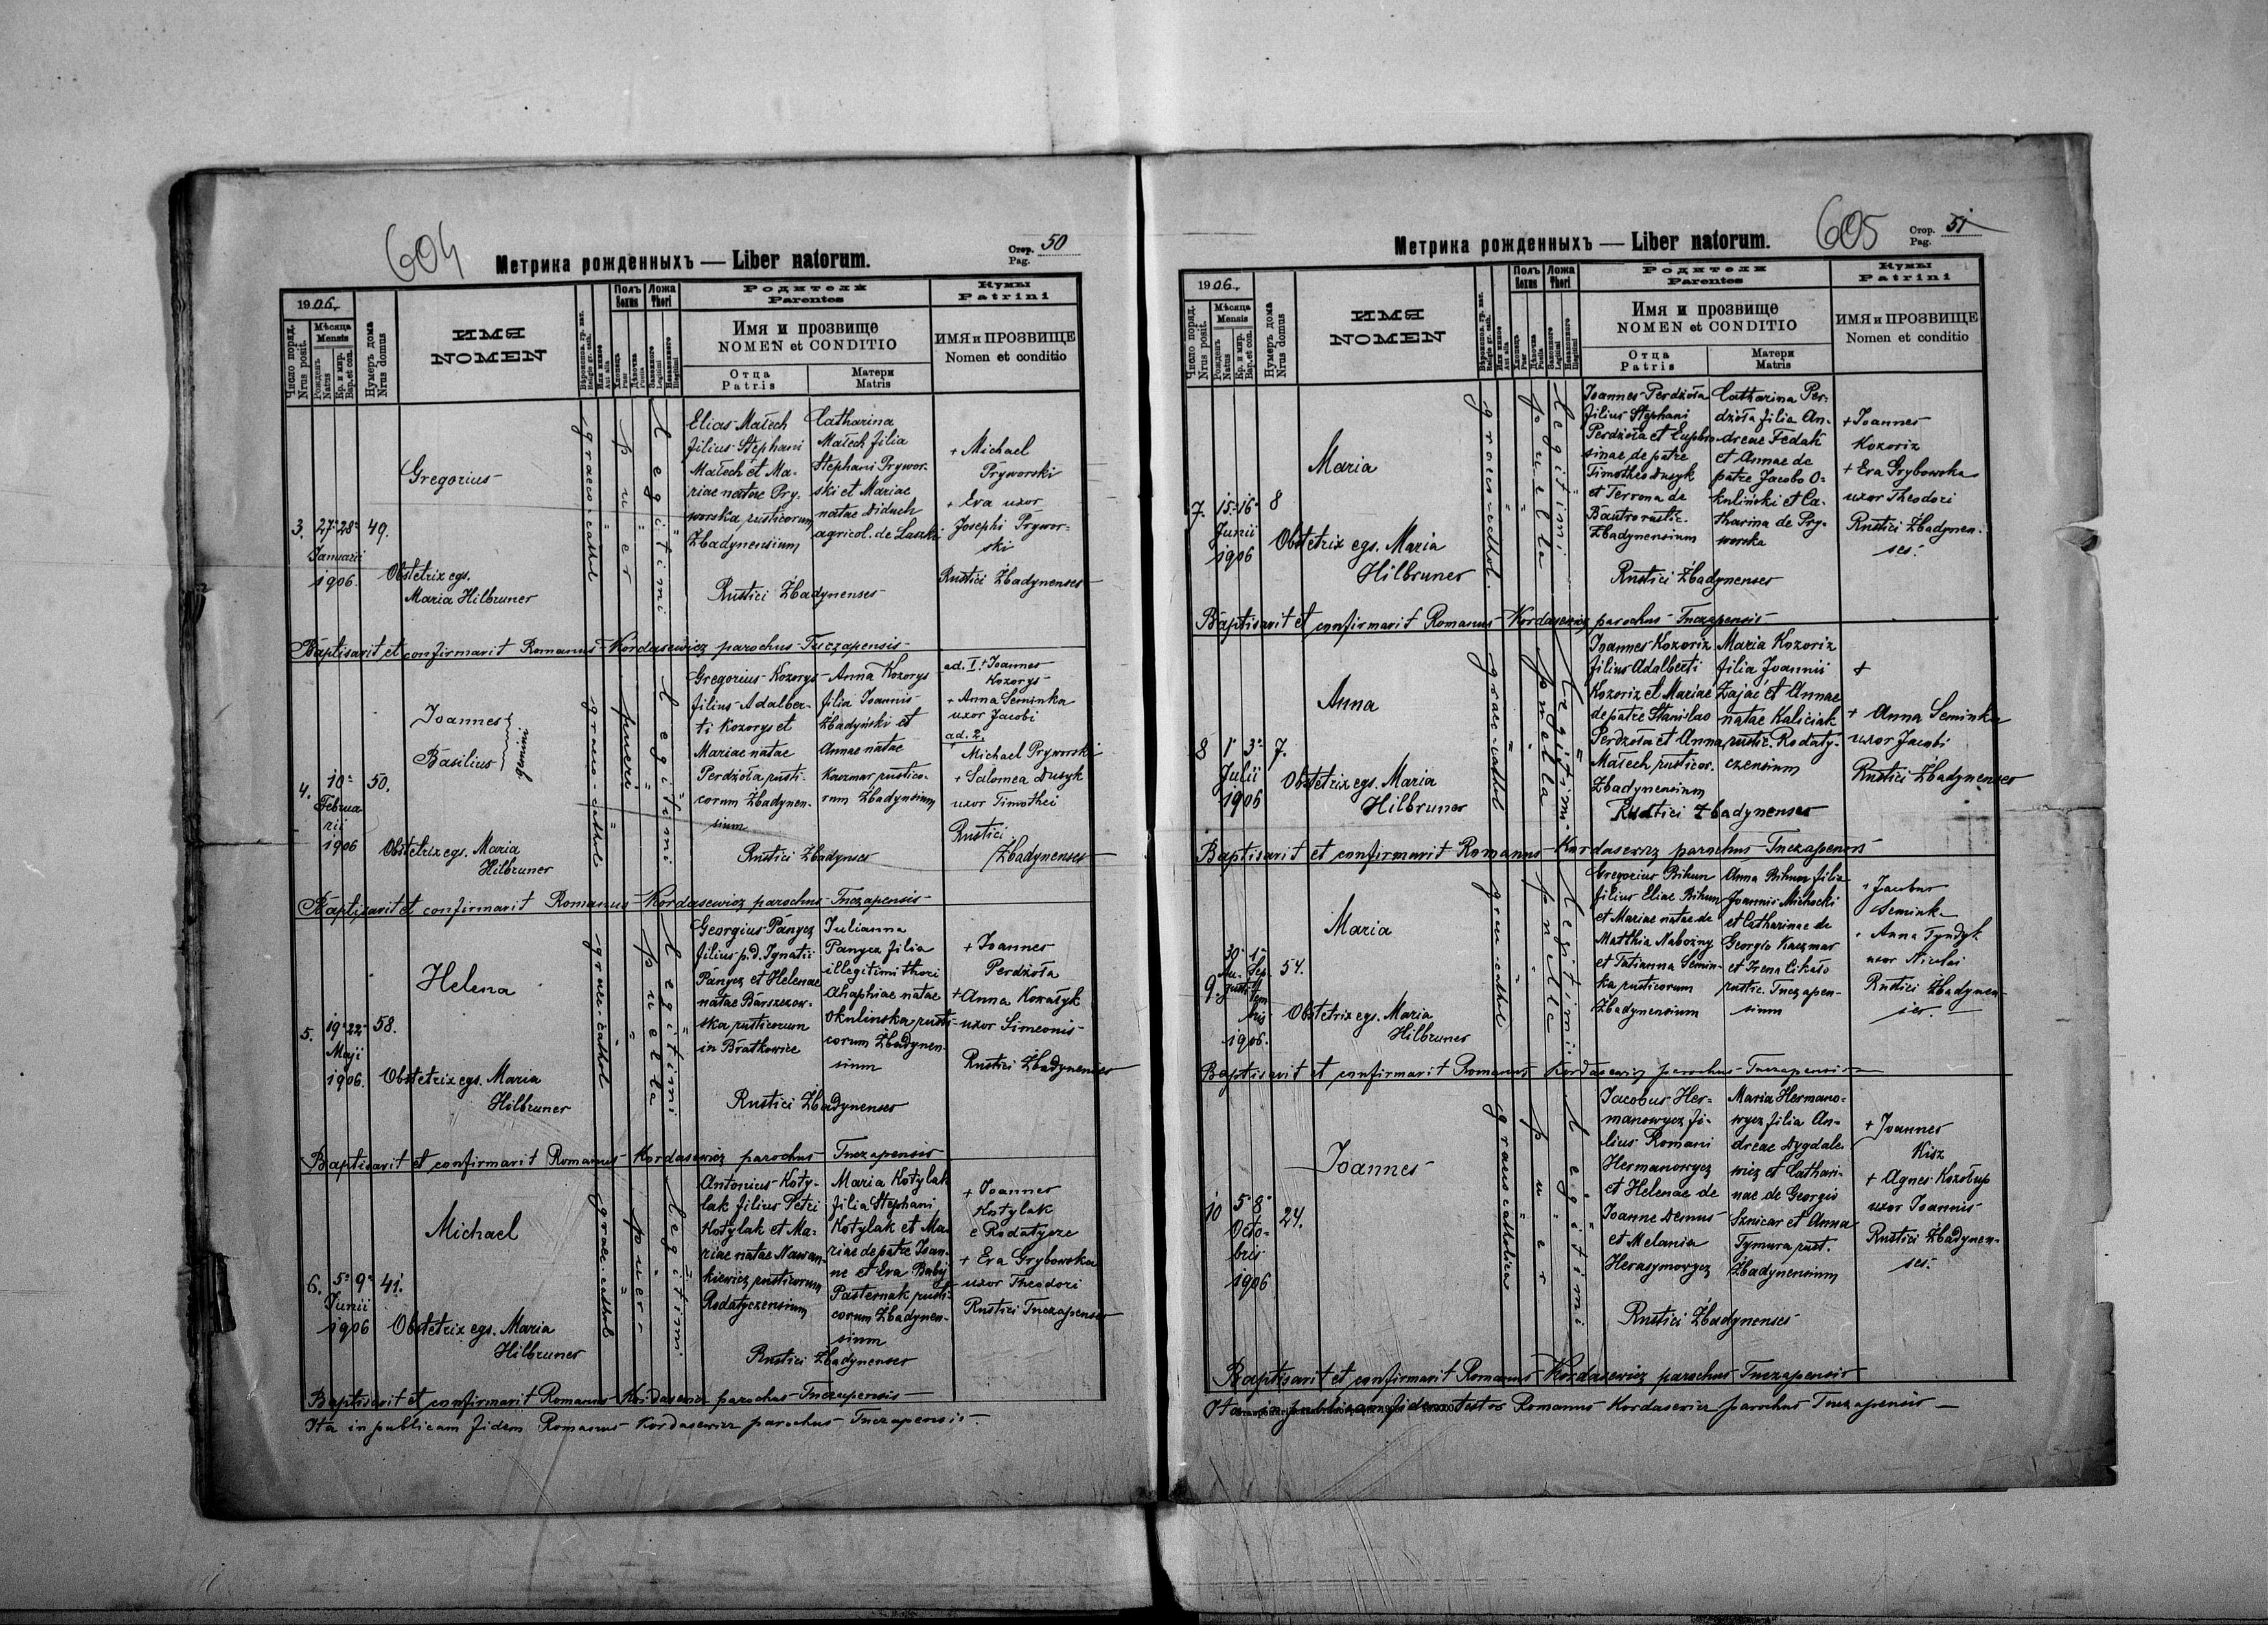 604
Метрика рожденныхъ — Liber natorum.
Стор. Pag. 50
1906.
Число поряд. Nrus posit.
Мѣсяца Mensis
Рожденъ Natus
Кр. и мир. Bap. et con.
Нумеръ дома Nrus domus
ИМЯ
NOMEN
Полъ Sexus
Ложа Thori
Родители
Parentes
Имя и прозвище
NOMEN et CONDITIO
Отца Patris
Матери Matris
Кумы
Patrini
ИМЯ и ПРОЗВИЩЕ
Nomen et conditio
3. 27. 28. 49.
Januarii
1906.
Gregorius
Obstetrix egs.
Maria Hilbruner
graeco-cathol
puer
legitimi
Elias Małech
filius Stephani
Małech et Ma-
riae natae Pry-
worska rusticorum
Żbadynensium
Catharina
Małech filia
Stephani Prywor-
ski et Mariae
natae Diduch
agricol. de Laszki
Rustici Żbadynenses
+ Michael
Pryworski
+ Eva uxor
Josephi Prywor-
ski
Rustici Żbadynenses
Baptisavit et confirmavit Romanus Kordasewicz parochus Tuczapensis
4. 10. 50.
Februa
rii
1906
Joannes
Basilius
gemini
Obstetrix egs. Maria
Hilbruner
graeco-cathol
pueri
legitimi
Gregorius Kozorys
filius Adalber-
ti Kozorys et
Mariae natae
Perdżoła rusti-
corum Żbadynen-
sium
Anna Kozorys
filia Joannis
Żbadyński et
Annae natae
Kaczmar rustico-
rum Żbadynsium
Rustici Żbadynses
ad. I. + Joannes
Kozorys
+ Anna Seminka
uxor Jacobi
ad. 2.
Michael Pryworski
+ Salomea Dusyk
uxor Timothei
Rustici
Żbadynenses
Baptisavit et confirmavit Romanus Kordasewicz parochus Tuczapensis
5. 19. 22. 58.
Maji
1906.
Helena
Obstetrix egs. Maria
Hilbruner
graec. cathol
puella
legitimi
Georgius Panycz
filius p.d. Ignatii
Panycz et Helenae
natae Barszczow-
ska rusticorum
in Bratkowice
Julianna
Panycz filia
illegitimi thori
Ahaphiae natae
Okulinska rusti-
corum Żbadynen-
sium
Rustici Żbadynenses
+ Joannes
Perdżoła
+ Anna Kowałyk
uxor Simeonis
Rustici Żbadynenses
Baptisavit et confirmavit Romanus Kordasewicz parochus Tuczapensis
6. 5. 9. 41.
Junii
1906
Michael
Obstetrix egs. Maria
Hilbruner
graec. cathol
puer
legitimi
Antonius Koty-
lak filius Petri
Kotylak et Ma-
riae natae Nawan-
kiewicz rusticorum
Rodatyczensium
Maria Kotylak
filia Stephani
Kotylak et Ma-
riae de patre Joan-
ne et Eva Babij
Pasternak rusti-
corum Żbadynen-
sium
Rustici Żbadynenses
+ Joannes
Kotylak
e Rodatycze
+ Eva Grybowska
uxor Theodori
Rustici Tuczapenses
Baptisavit et confirmavit Romanus Kordasewicz parochus Tuczapensis
Ita in publicam fidem Romanus Kordasewicz parochus Tuczapensis.
605
Метрика рожденныхъ — Liber natorum.
Стор. Pag. 51
1906.
Число поряд. Nrus posit.
Мѣсяца Mensis
Рожденъ Natus
Кр. и мир. Bap. et con.
Нумеръ дома Nrus domus
ИМЯ
NOMEN
Полъ Sexus
Ложа Thori
Родители
Parentes
Имя и прозвище
NOMEN et CONDITIO
Отца Patris
Матери Matris
Кумы
Patrini
ИМЯ и ПРОЗВИЩЕ
Nomen et conditio
7. 15. 16. 8
Junii
1906
Maria
Obstetrix egs. Maria
Hilbruner
graeco-cathol.
puella
legitimi
Joannes Perdżoła
filius Stephani
Perdżoła et Euphro-
sinae de patre
Timotheo Dusyk
et Terrona de
Bautro rustic.
Żbadynensium
Catharina Per-
dżoła filia An-
dreae Fedak
et Annae de
patre Jacobo O-
kuliński et Ca-
tharina de Pry-
worska
Rustici Żbadynenses
+ Joannes
Kozoriz
+ Eva Grybowska
uxor Theodori
Rustici Żbadynen-
ses.
Baptisavit et confirmavit Romanus Kordasewicz parochus Tuczapensis
8 1. 3. 7.
Julii
1906
Anna
Obstetrix egs. Maria
Hilbruner
graec-cathol
puella
legitimi
Joannes Kozoriz
filius Adalberti
Kozoriz et Mariae
de patre Stanislao
Perdżoła et Anna
Małech rusticor.
Żbadynensium
Maria Kozoriz
filia Joannis
Zając et Annae
natae Kaliciak
rustic. Rodaty-
czensium
Rustici Żbadynenses
+
+ Anna Seminka
uxor Jacobi
Rustici Żbadynenses
Baptisavit et confirmavit Romanus Kordasewicz parochus Tuczapensis
9. 30. 1. 54.
Au- Sep-
gusti tem
bris
1906.
Maria
Obstetrix egs. Maria
Hilbruner
graec-cathol
puella
legitimi
Gregorius Bihun
filius Eliae Bihun
et Mariae natae de
Matthia Nabożny
et Tatianna Semin-
ka rusticorum
Żbadynensium
Anna Bihun filia
Joannis Michocki
et Catharinae de
Georgio Kaczmar
et Irena Cikało
rustic. Tuczapen-
sium
+ Jacobus
Seminka
+ Anna Tyndyk
uxor Nicolai
Rustici Żbadynen-
ses.
Baptisavit et confirmavit Romanus Kordasewicz parochus Tuczapensis
10 5. 8. 24.
Octo-
bris
1906
Joannes
graeco catholica
puer
legitimi
Jacobus Her-
manowycz fi-
lius Romani
Hermanowycz
et Helenae de
Joanne Demus
et Melania
Herasymowycz
Maria Hermano-
wycz filia An-
dreae Dygdale-
wicz et Cathari-
nae de Georgio
Sznicar et Anna
Tymura rust.
Żbadynensium
Rustici Żbadynenses
+ Joannes
Kisz
+ Agnes Kozołup
uxor Joannis
Rustici Żbadynen-
ses.
Baptisavit et confirmavit Romanus Kordasewicz parochus Tuczapensis
Ita in publicam fidem testor Romanus Kordasewicz parochus Tuczapensis